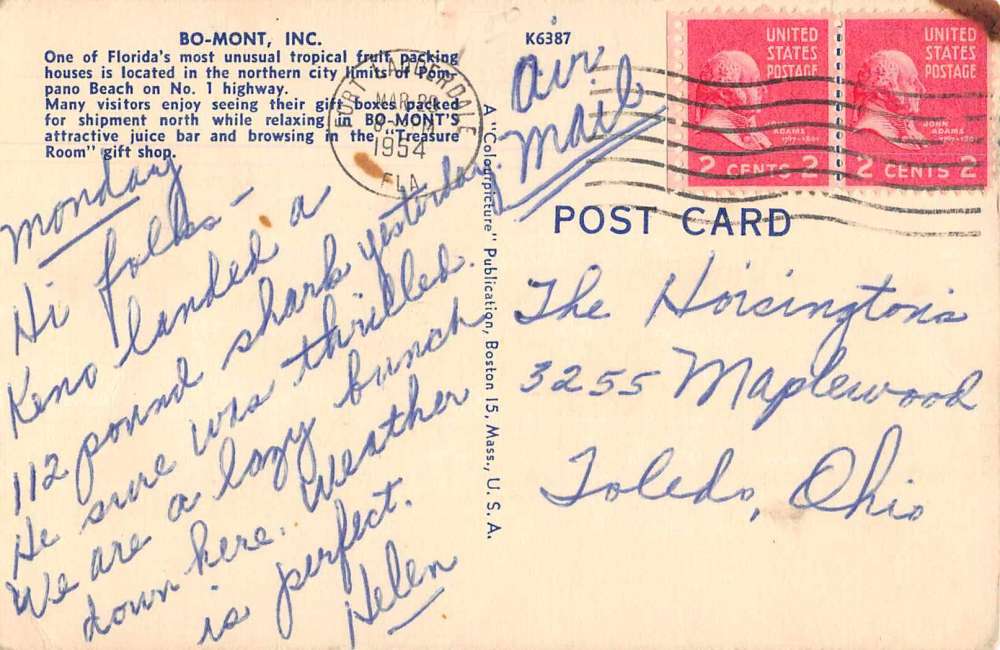 BO-MONT, INC.
One of Florida's most unusual tropical fruit packing
houses is located in the northern city limits of Pom-
pano Beach on No. 1 highway.
Many visitors enjoy seeing their gift boxes packed
for shipment north while relaxing in BO-MONT'S
attractive juice bar and browsing in the "Treasure
Room" gift shop.
Monday
Hi folks -
Keno landed a
112 pound shark yesterday.
He sure was thrilled.
We are a lazy bunch
down here. Weather
is perfect.
Helen
FORT LAUDERDALE
MAR 29
PM
1954
FLA.
A "Colourpicture" Publication, Boston 15, Mass., U. S. A.
K6387
Air
Mail
UNITED
STATES
POSTAGE
JOHN
ADAMS
1797-1801
2 CENTS 2
UNITED
STATES
POSTAGE
JOHN
ADAMS
1797-1801
2 CENTS 2
POST CARD
The Hoisington's
3255 Maplewood
Toledo, Ohio